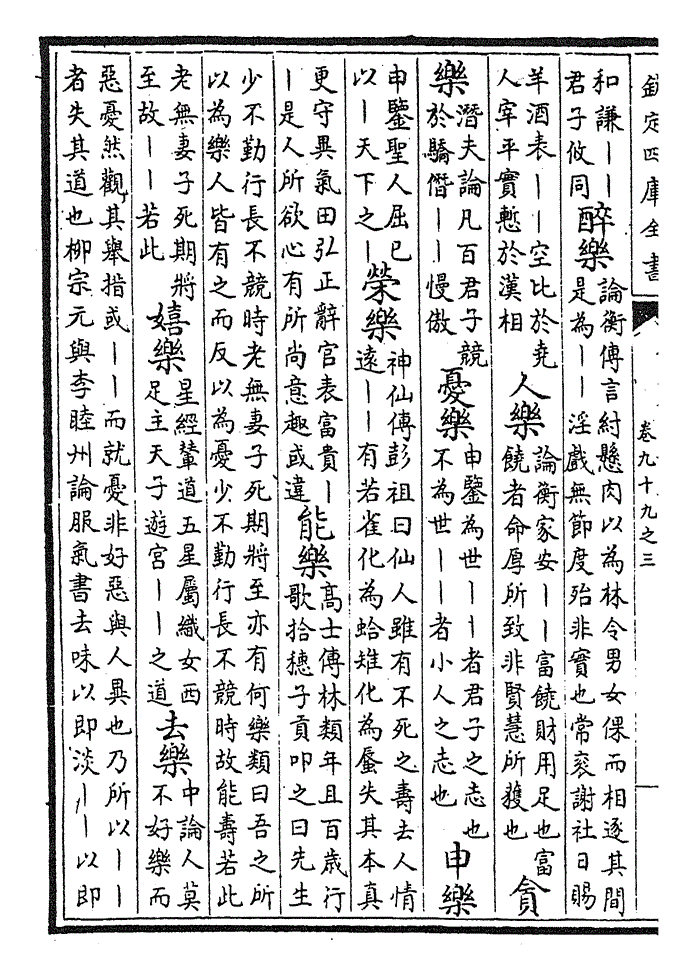 欽定四庫全書
卷九十九之三
和謙丨丨
君子攸同
醉樂
論衡傳言紂懸肉以為林令男女倮而相逐其間
是為丨丨淫戲無節度殆非實也常袞謝社日賜
羊酒表丨丨空比於堯
人宰平實慙於漢相
人樂
論衡家安丨丨富饒財用足也富
饒者命厚所致非賢慧所獲也
貪
樂
潛夫論凡百君子競
於驕僭丨丨慢傲
憂樂
申鑒為世丨丨者君子之志也
不為世丨丨者小人之志也
申樂
申鑒聖人屈己
以丨天下之丨
榮樂
神仙傳彭祖曰仙人雖有不死之壽去人情
遠丨丨有若雀化為蛤雉化為蜃失其本真
更守異氣田弘正辭官表富貴丨
丨是人所欲心有所尚意趣或違
能樂
高士傳林類年且百歲行
歌拾穗子貢叩之曰先生
少不勤行長不競時老無妻子死期將至亦有何樂類曰吾之所
以為樂人皆有之而反以為憂少不勤行長不競時故能壽若此
老無妻子死期將
至故丨丨若此
嬉樂
星經輦道五星屬織女西
足主天子遊宮丨丨之道
去樂
中論人莫
不好樂而
惡憂然觀其舉措或丨丨而就憂非好惡與人異也乃所以丨丨
者失其道也柳宗元與李睦州論服氣書去味以即淡丨丨以即